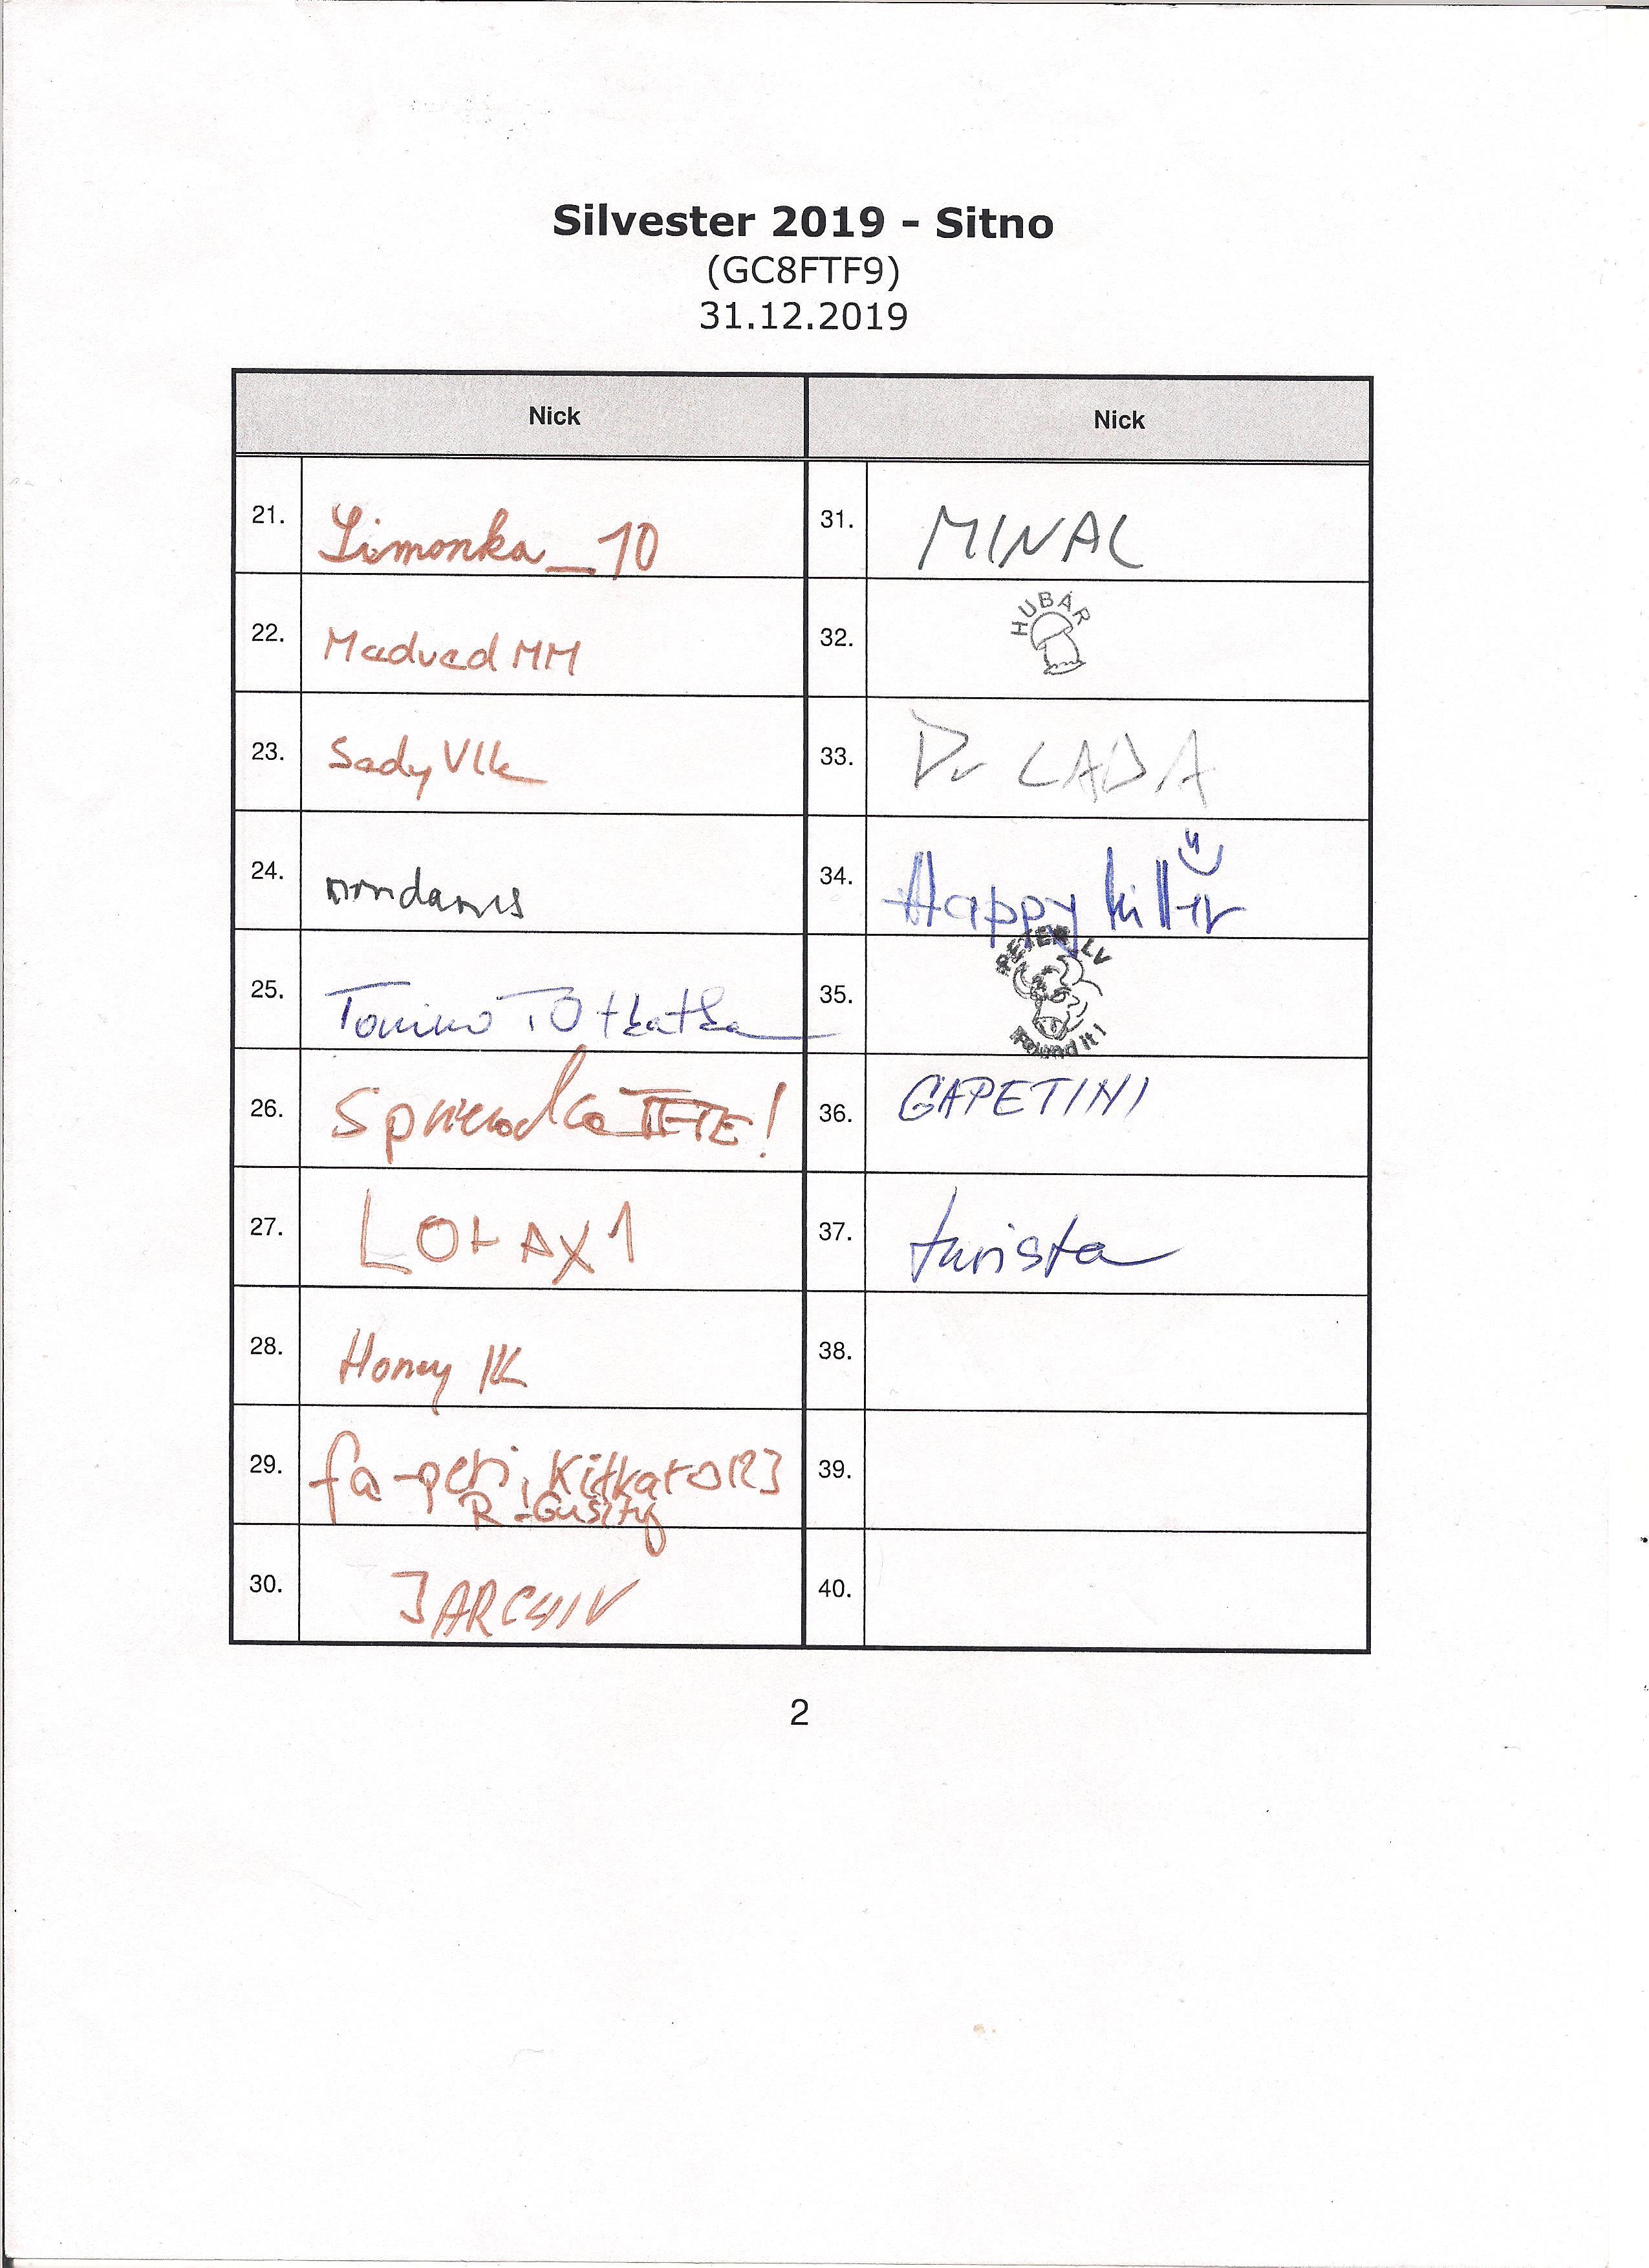 Silvester 2019 - Sitno
(GC8FTF9)
31.12.2019
Nick
21. Limonka_10
22. Medved MM
23. Sady Vlk
24.
25. Tonino TO +
26. TETE!
27. LOrAX1
28. Honey IK
29. fa-peti, Kitkator3
R-Gusity
30. JARCHIV
Nick
31. MINAL
32. HUBÁR
33. Dr LADA
34. Happy killer
35. PETER_LV
Found it!
36. GAPETINI
37. turista
38.
39.
40.
2